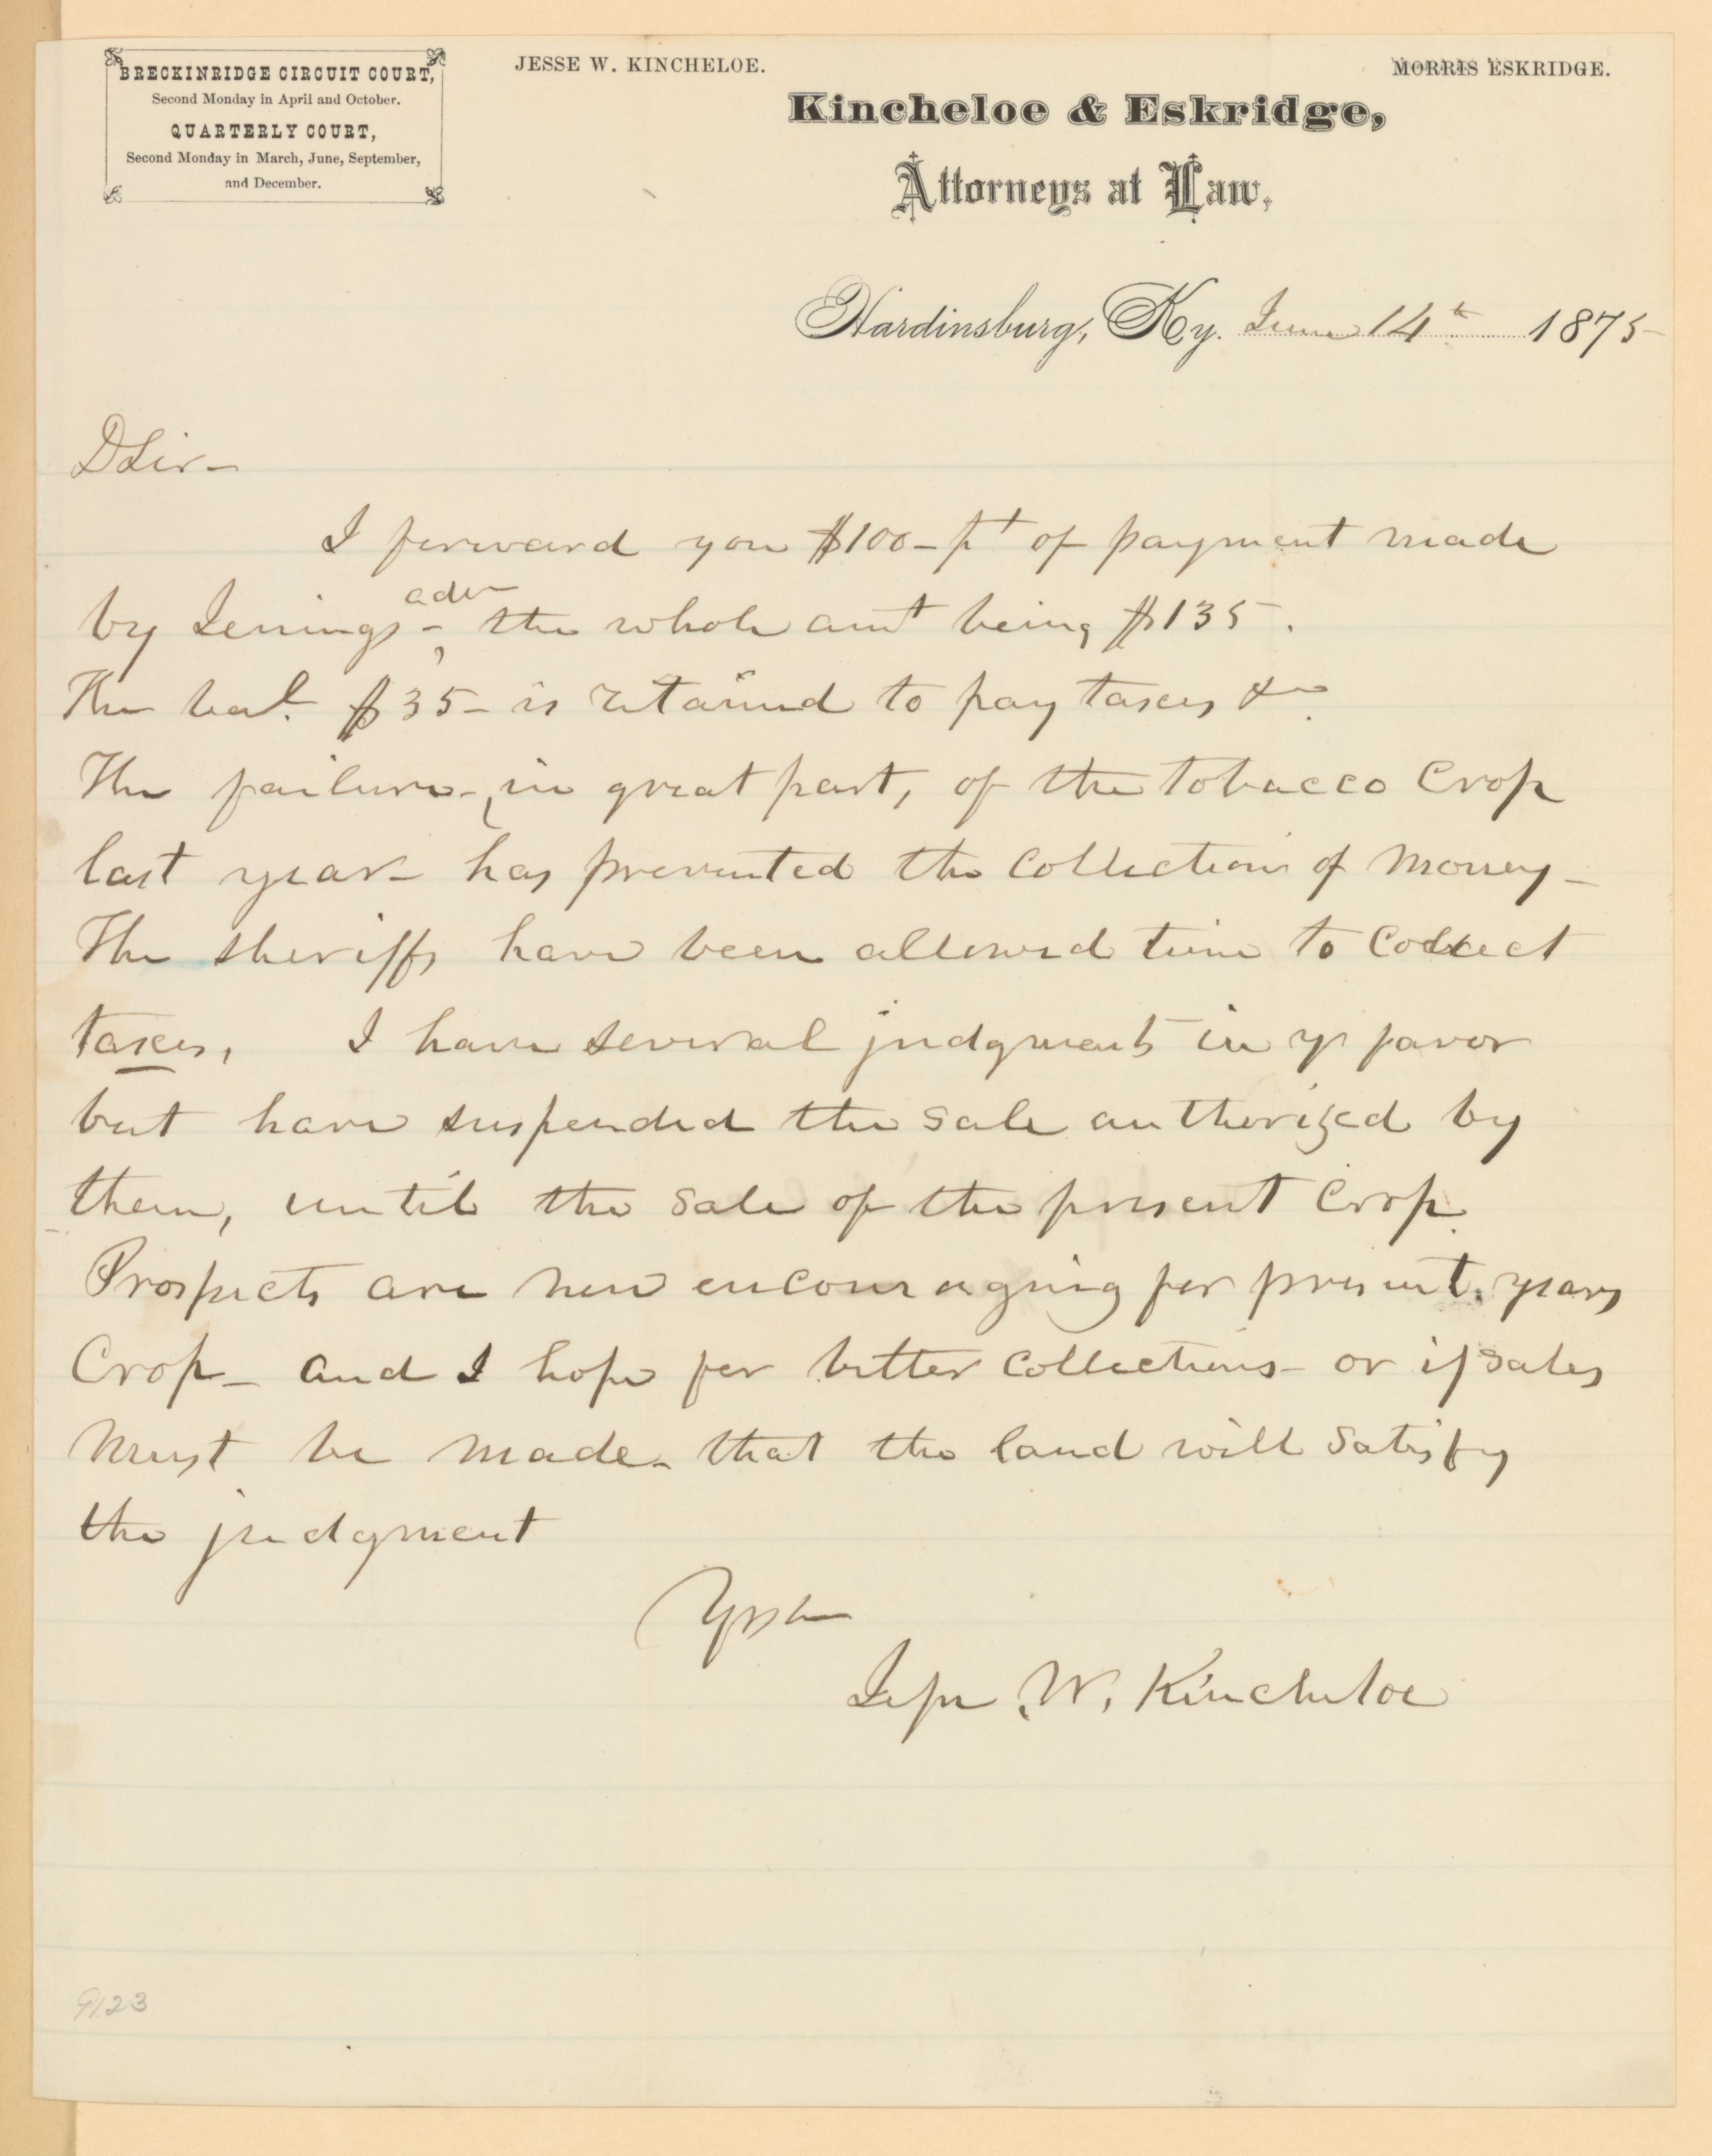 BRECKINRIDGE CIRCUIT COURT,
Second Monday in April and October.
QUARTERLY COURT,
Second Monday in March, June, September,
and December.
JESSE W. KINCHELOE.
MORRIS ESKRIDGE.
Kincheloe & Eskridge,
Attorneys at Law,
Hardinsburg, Ky. June 14th 1875
D Sir-
I forward you $100- pt of payment made
adr
by Jennings - the whole amt being $135.
The bal. $35- is retained to pay taxes &c.
The failure, in great part, of the tobacco Crop
last year- has prevented the Collection of Money-
The sheriffs have been allowed time to Collect
taxes, I have several judgments in yr favor
but have suspended the sale authorized by
them, until the sale of the present Crop.
Prospects are now encouraging for present years
Crop- and I hope for better Collections- or if sales
Must be made- that the land will satisfy
the judgment
Yrs &c
Jesse W. Kincheloe
9123